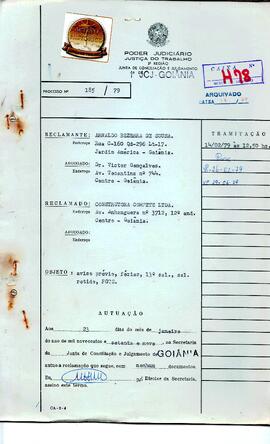 PODER JUDICIÁRIO
JUSTIÇA DO TRABALHO
JUNTA DE CONCILIAÇÃO E JULGAMENTO
1ª JCJ-GOIÂNIA
CAIXA
H78
ARQUIVADO
PROCESSO Nº 185 / 79
RECLAMANTE: ARNALDO BEZERRA DE SOUZA.
Endereço Rua C-160 Qd-296 Lt-17.
Jardim América - Goiânia.
ADVOGADO: Dr. Victor Gonçalves.
Endereço Av. Tocantins nº 744.
Centro - Goiânia.
RECLAMADO: CONSTRUTORA COMPETE LTDA.
Endereço Av. Anhanguera nº 3712, 12º and.
Centro - Goiânia.
ADVOGADO:
Endereço
OBJETO: aviso prévio, férias, 13º sal., sal.
retido, FGTS.
TRAMITAÇÃO
14/02/79 às 12,50 hs.
AUTUAÇÃO
Aos 23 dias do mês de janeiro
do ano de mil novecentos e setenta e nove, na Secretaria
da Junta de Conciliação e Julgamento de GOIÂNIA
autuo a reclamação que segue, com nenhum documentos
Diretor da Secretaria,
assino este termo.